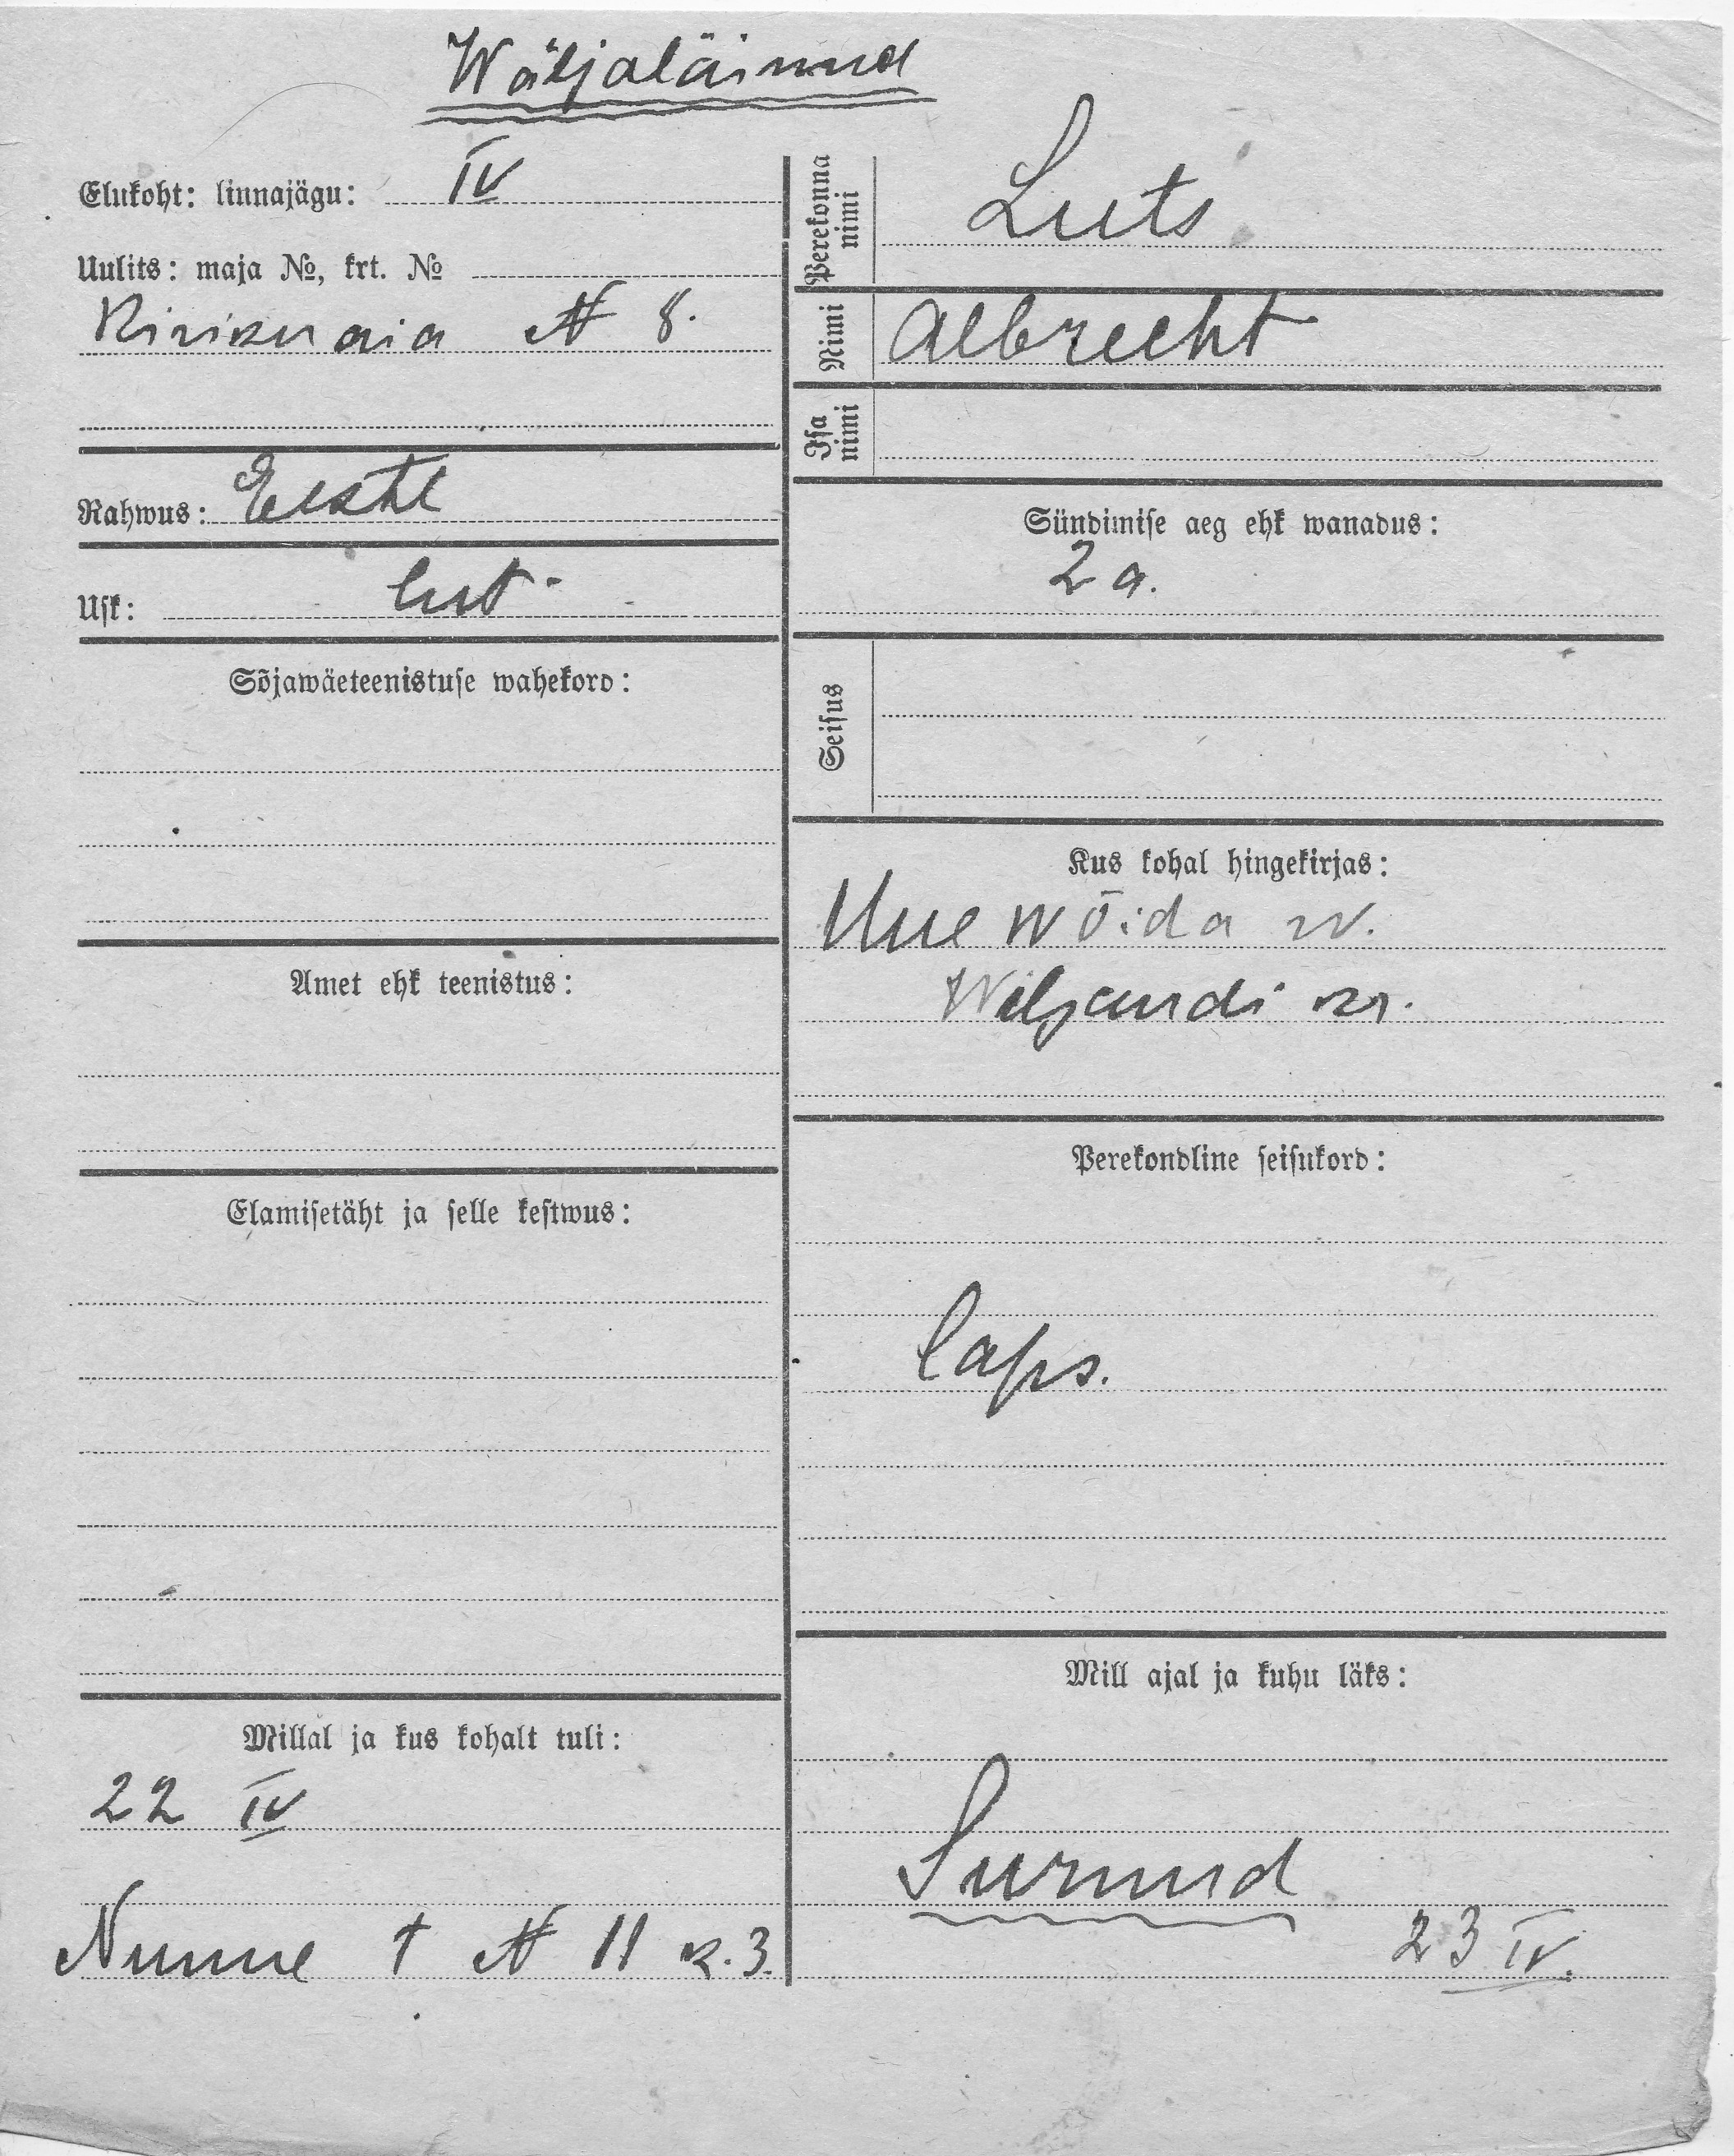 Wäljaläinud
Elukoht: linnajägu: IV
Uulits: maja №, krt. №
Kirikuaia № 8.
Rahwus: Eestl
Usk: lut
Sõjawäeteenistuse wahekord:
Amet ehk teenistus:
Elamisetäht ja selle kestwus:
Millal ja kus kohalt tuli:
22 IV
Nunne t № 11 k. 3.
Perekonna nimi Luts
Nimi Albrecht
Isa nimi
Sündimise aeg ehk wanadus:
2 a.
Seisus
Kus kohal hingekirjas:
Uue wõida w.
Wiljandi kr.
Perekondline seisukord:
laps.
Mill ajal ja kuhu läks:
Surnud
23 IV.